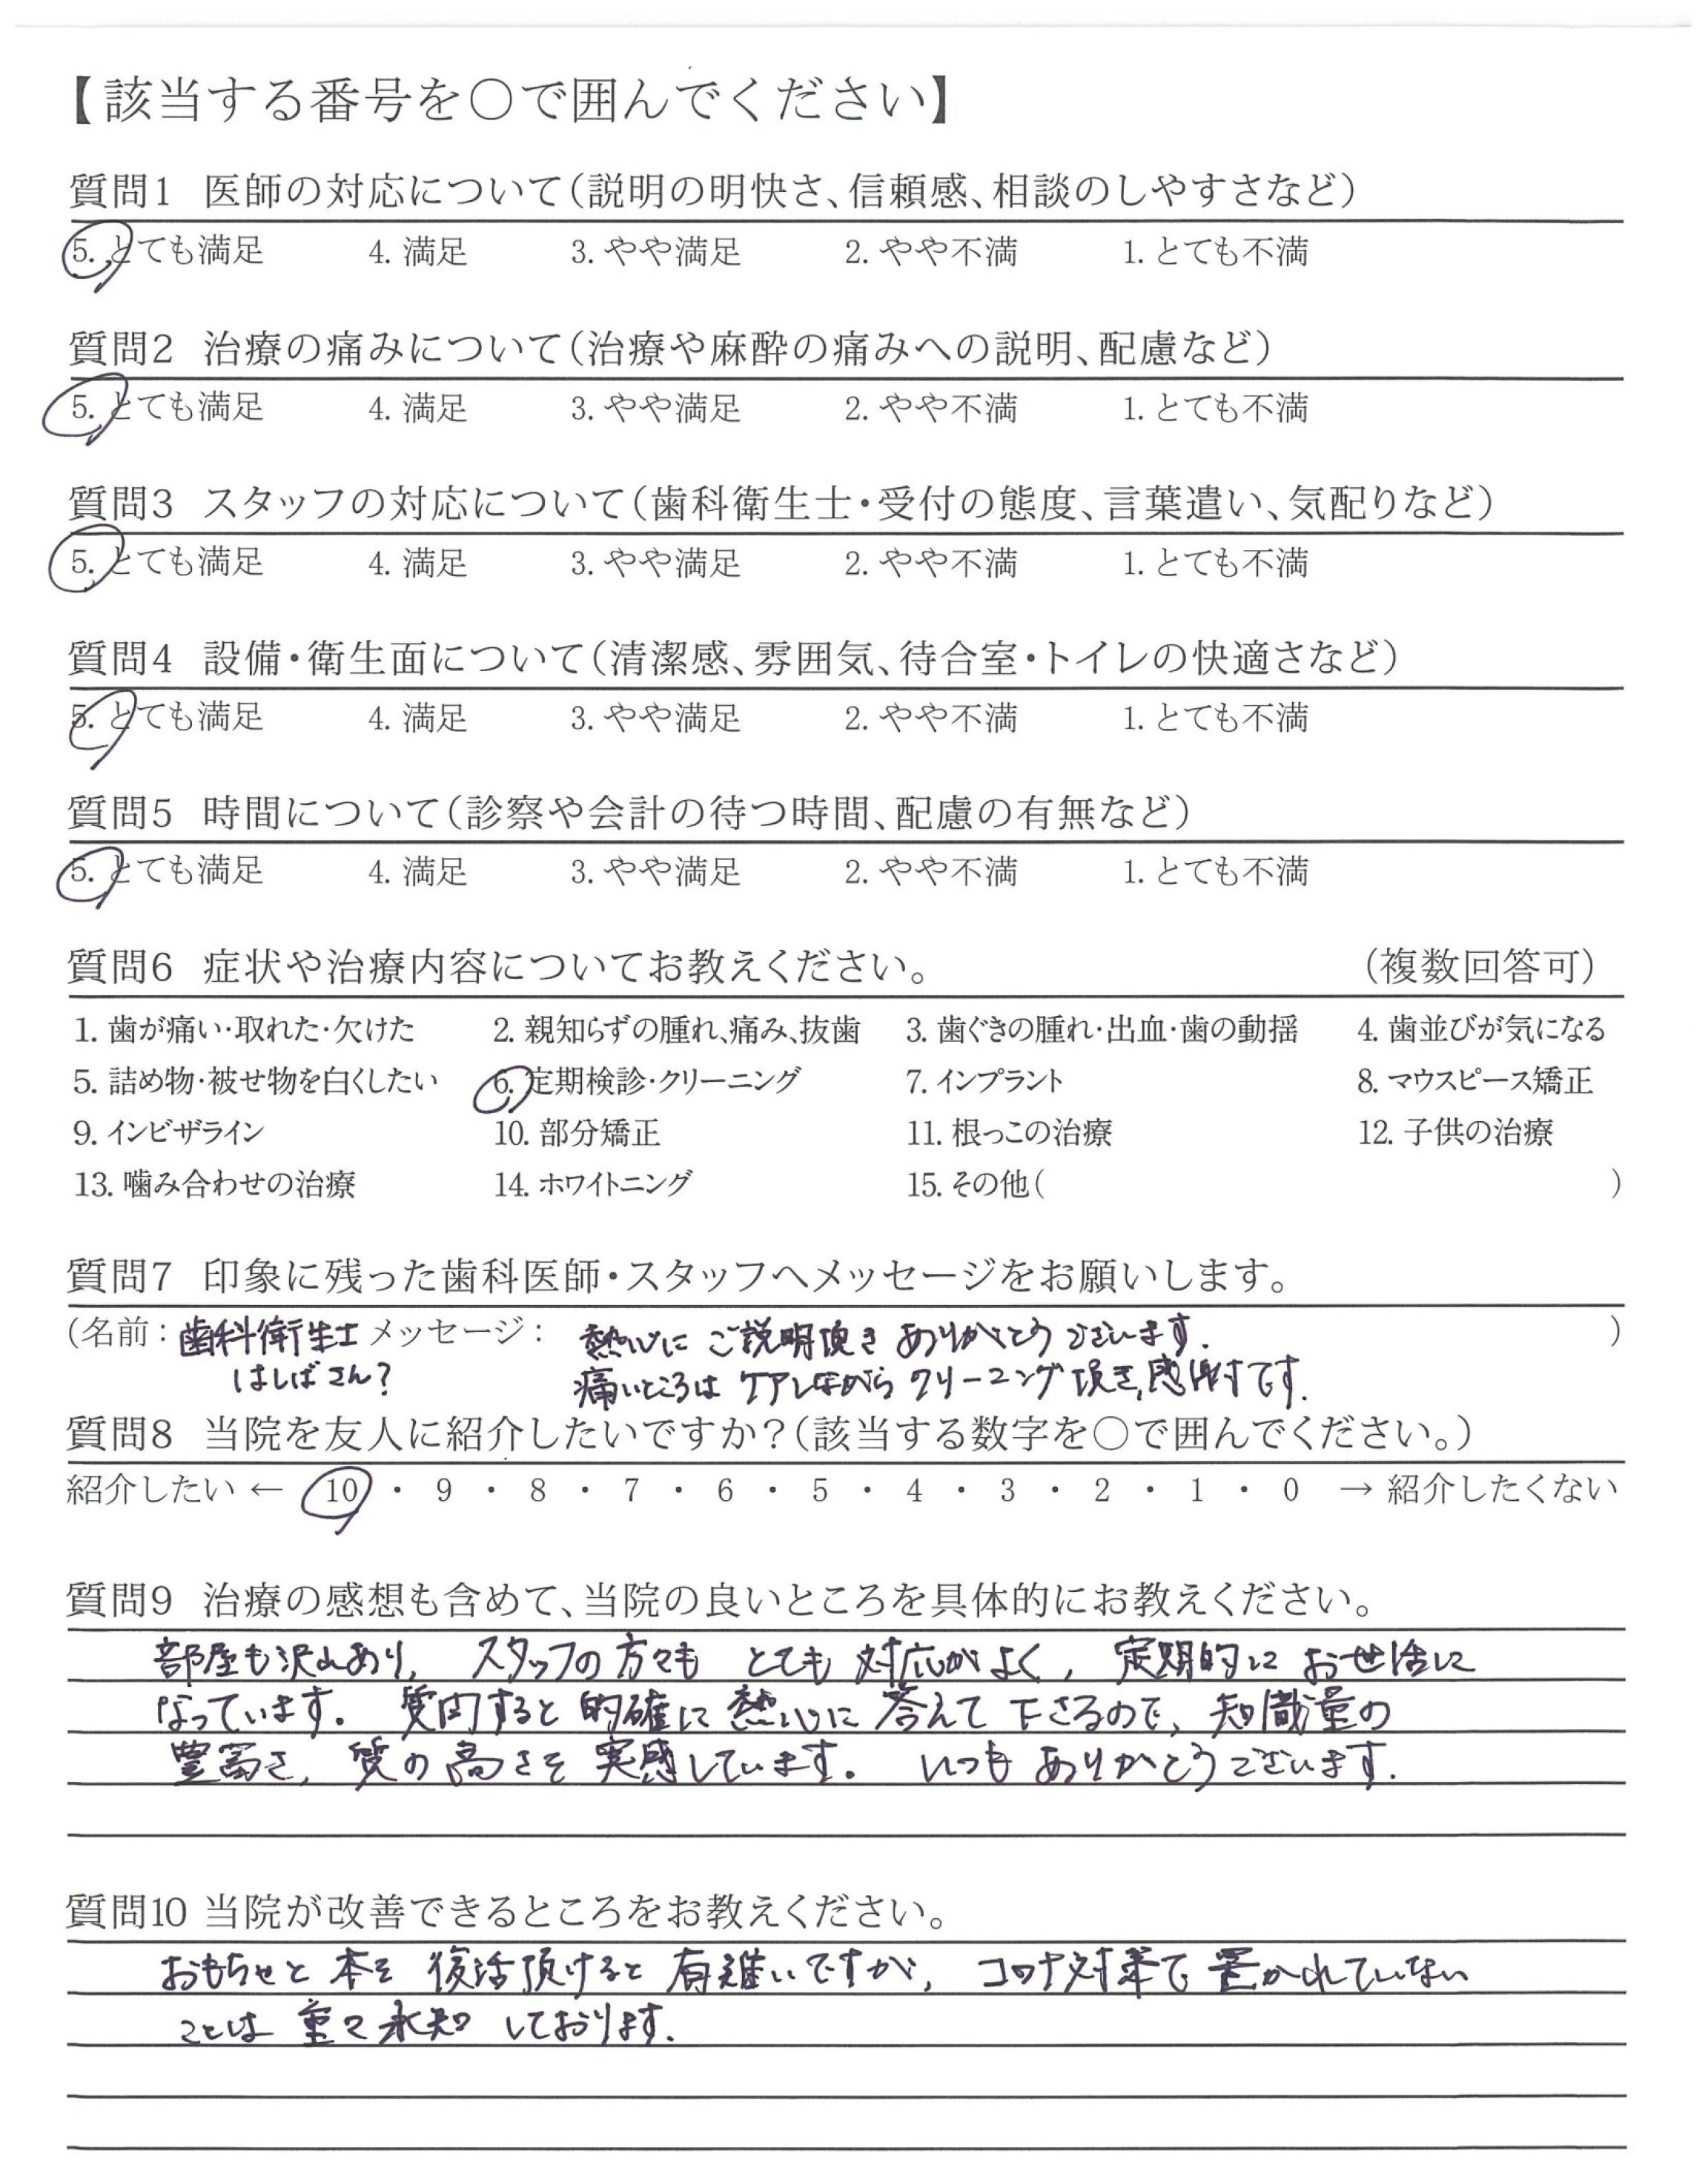 【該当する番号を○で囲んでください】
質問1 医師の対応について(説明の明快さ、信頼感、相談のしやすさなど)
5. とても満足 4. 満足 3. やや満足 2. やや不満 1. とても不満
質問2 治療の痛みについて(治療や麻酔の痛みへの説明、配慮など)
5. とても満足 4. 満足 3. やや満足 2. やや不満 1. とても不満
質問3 スタッフの対応について(歯科衛生士・受付の態度、言葉遣い、気配りなど)
5. とても満足 4. 満足 3. やや満足 2. やや不満 1. とても不満
質問4 設備・衛生面について(清潔感、雰囲気、待合室・トイレの快適さなど)
5. とても満足 4. 満足 3. やや満足 2. やや不満 1. とても不満
質問5 時間について(診察や会計の待つ時間、配慮の有無など)
5. とても満足 4. 満足 3. やや満足 2. やや不満 1. とても不満
質問6 症状や治療内容についてお教えください。 (複数回答可)
1. 歯が痛い・取れた・欠けた 2. 親知らずの腫れ、痛み、抜歯 3. 歯ぐきの腫れ・出血・歯の動揺 4. 歯並びが気になる
5. 詰め物・被せ物を白くしたい 6. 定期検診・クリーニング 7. インプラント 8. マウスピース矯正
9. インビザライン 10. 部分矯正 11. 根っこの治療 12. 子供の治療
13. 噛み合わせの治療 14. ホワイトニング 15. その他( )
質問7 印象に残った歯科医師・スタッフへメッセージをお願いします。
(名前: 歯科衛生士 メッセージ: 熱心に ご説明頂き ありがとう ございます. )
はしばさん? 痛いところは ケアしながら クリーニング頂き、感謝です.
質問8 当院を友人に紹介したいですか?(該当する数字を○で囲んでください。)
紹介したい ← 10 ・ 9 ・ 8 ・ 7 ・ 6 ・ 5 ・ 4 ・ 3 ・ 2 ・ 1 ・ 0 → 紹介したくない
質問9 治療の感想も含めて、当院の良いところを具体的にお教えください。
部屋も沢山あり、 スタッフの方々も とても 対応がよく, 定期的に お世話に
なっています。 質問すると 的確に 熱心に 答えて 下さるので、知識量の
豊富さ, 質の高さを 実感しています。 いつも ありがとうございます.
質問10 当院が改善できるところをお教えください。
おもちゃと 本を 復活頂けると 有難いですが, コロナ対策で 置かれていない
ことは 重々承知 しております.